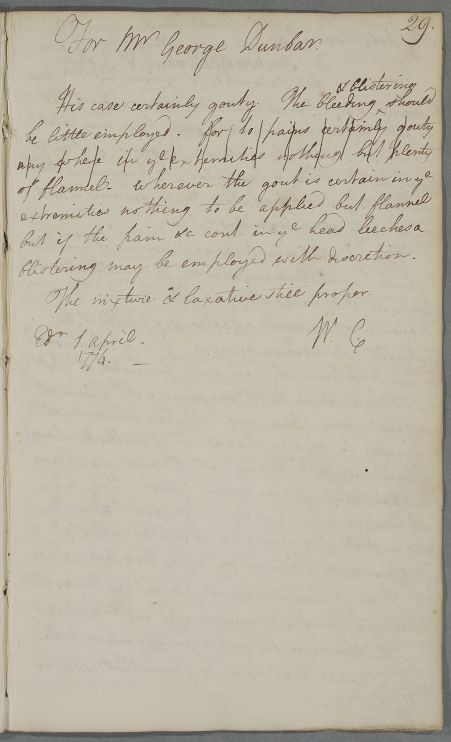 29.
For Mr. George Dunbar.
& blistering
His case certainly gouty. The bleeding ^ should
be little employed. for to pains certainly gouty
any where in ye extremities nothing but plenty
of flannel. wherever the gout is certain in ye
extremities nothing to be applied but flannel
but if the pain &c cont. in ye head leeches &
blistering may be employed with discretion.
The mixture & laxative still proper.
Edr. 1 April.
1774.
W. C